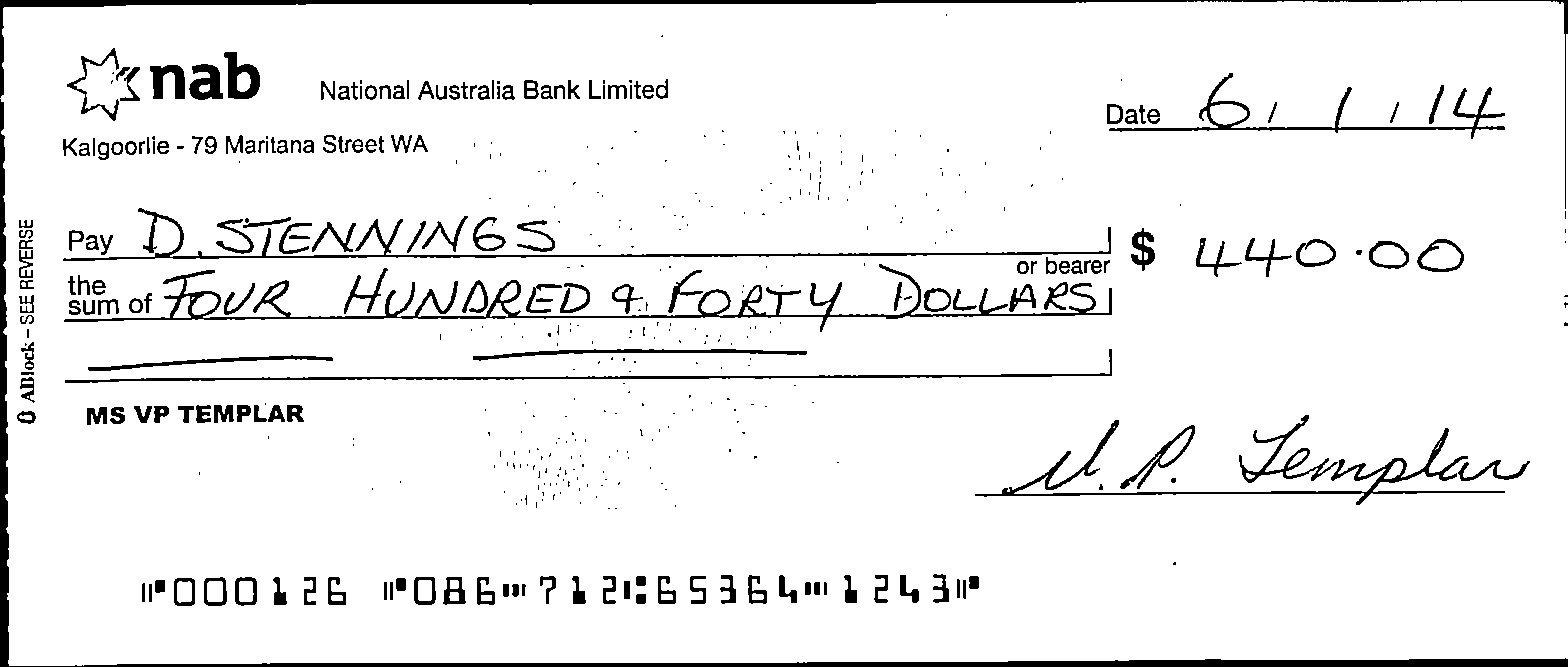 nab
National Australia Bank Limited
Kalgoorlie - 79 Maritana Street WA
Date 6 / 1 / 14
Pay D. STENNINGS
or bearer
$ 440.00
the sum of FOUR HUNDRED & FORTY DOLLARS
MS VP TEMPLAR
V. P. Templar
ABlock – SEE REVERSE
⑈000126 ⑈086⑉712⑆65364⑉1243⑈